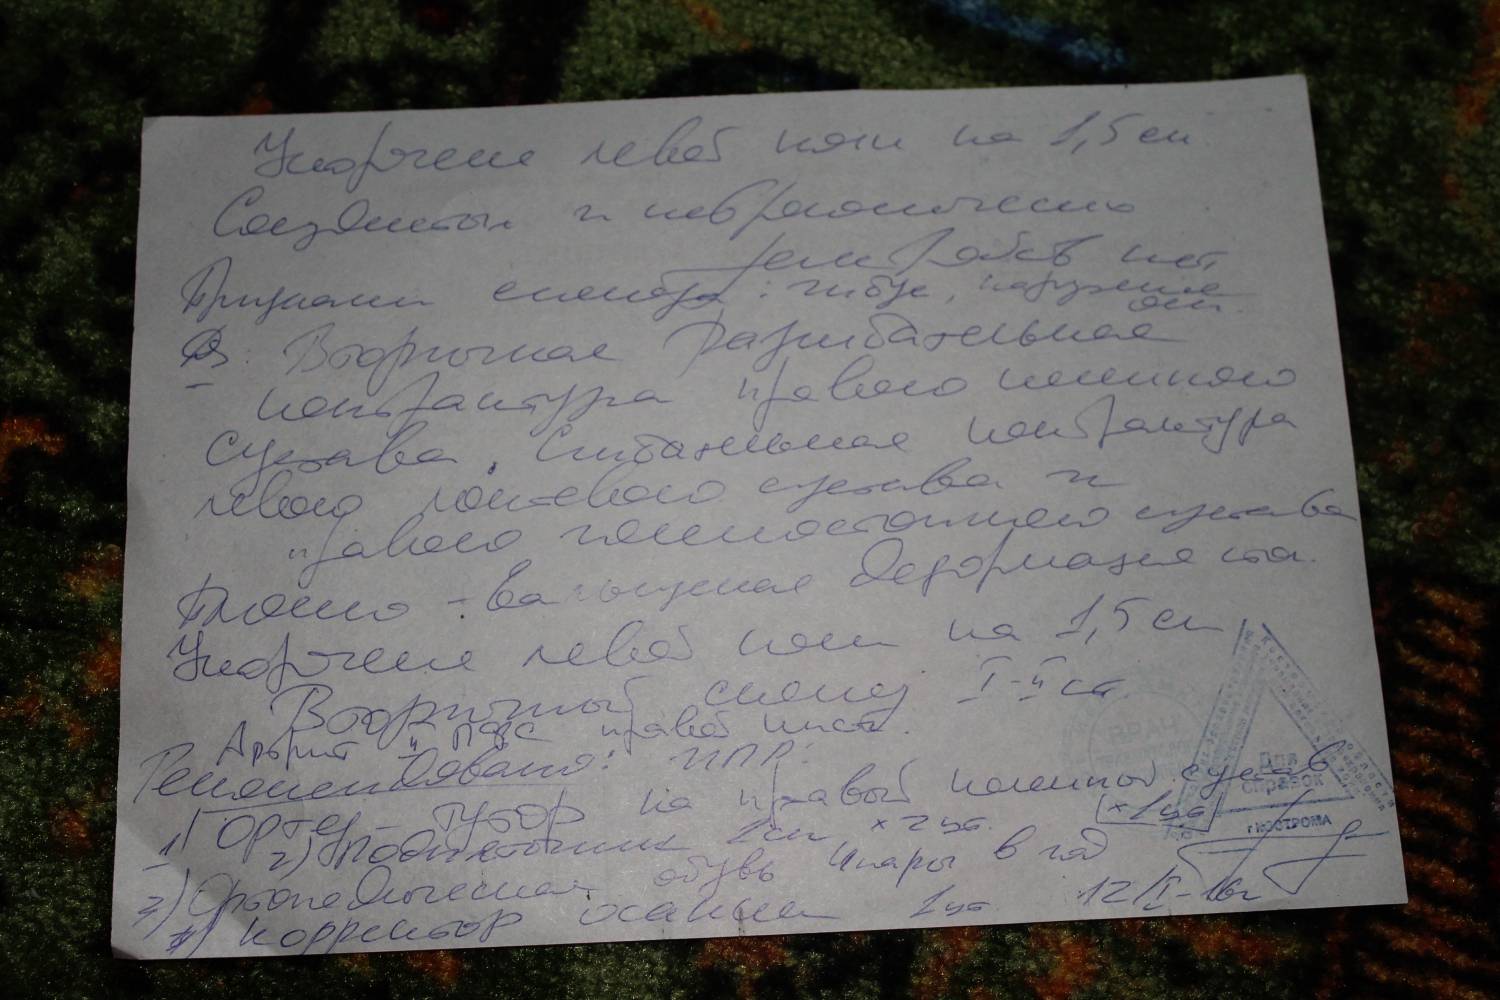 Укорочение левой ноги на 1,5 см
и неврологических
расстройств нет
Признаки сколиоза: гибус, нарушение
ос.
Ds: Вторичная разгибательная
контрактура правого коленного
сустава. Сгибательная контрактура
левого локтевого сустава и
правого голеностопного сустава
Плоско-вальгусная деформация стоп.
Укорочение левой ноги на 1,5 см
Вторичный сколиоз I-II ст.
Артрит правой кисти.
Рекомендовано: ИПР:
1) Ортез - тутор на правый коленный сустав
x 1 шт
2) Подпяточник 1 см x 2 шт.
3) Ортопедическая обувь 4 пары в год
4) Корректор осанки 1 шт. 12/I-16г
ВРАЧ
Для
справок
г. КОСТРОМА